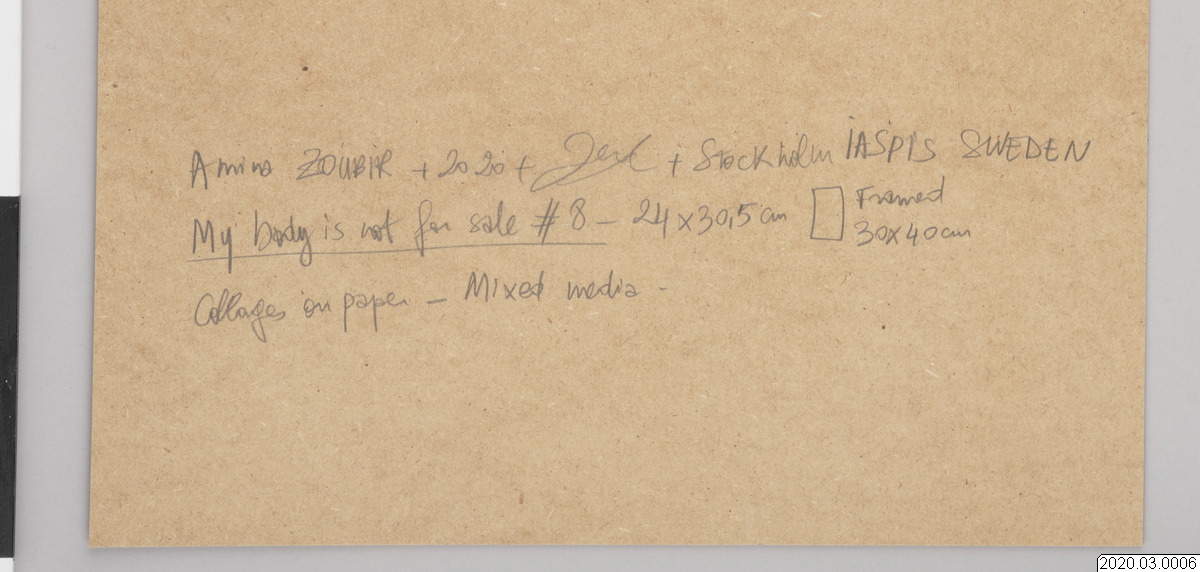 Amina ZOUBIR + 2020 + + Stockholm IASPIS SWEDEN
My body is not for sale # 8 – 24 x 30,5 cm Framed
30x40cm
Collages on paper – Mixed media -
2020.03.0006